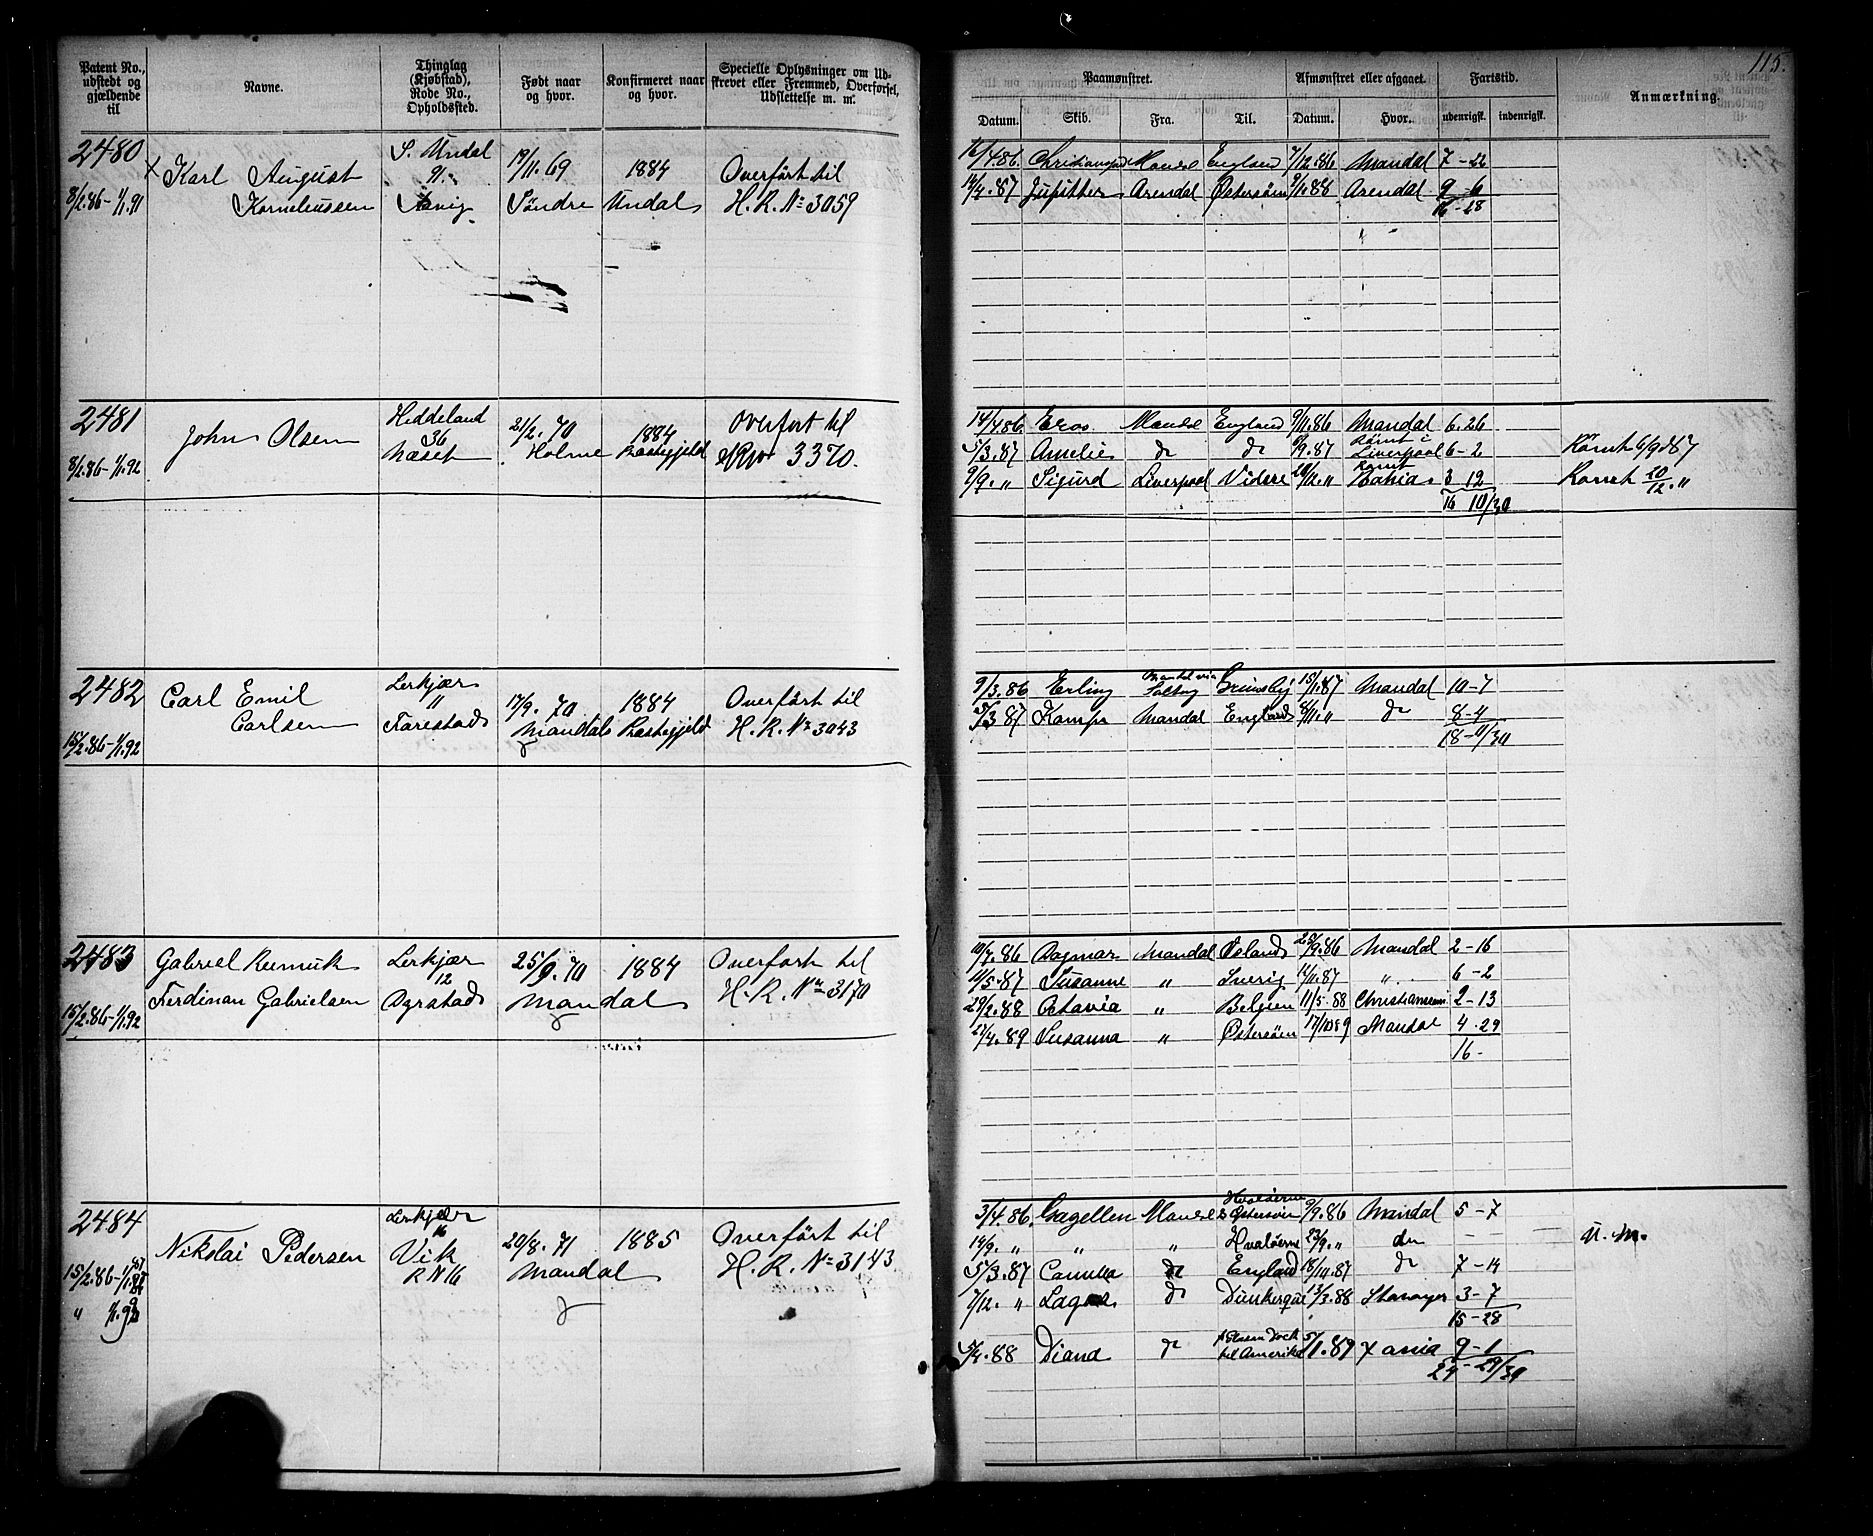 115.
Patent No., udstedt og gjældende til
Navne.
Thinglag (Kjøbstad), Rode No., Opholdssted.
Født naar og hvor.
Konfirmeret naar og hvor.
Specielle Oplysninger om Udskrevet eller Fremmed, Overførsel, Udslettelse m. m.
Paamønstret.
Afmønstret eller afgaaet.
Fartstid.
Anmærkning.
Datum.
Skib.
Fra.
Til.
Datum.
Hvor.
udenrigsk.
indenrigsk.
2480
8/2.86-1/1.91
Karl August Korneliussen
S. Undal
91.
19/11.69
Söndre Undal
1884
Overført til
H. R. No 3059
16/4.86 Mandal England 7/12.86 Mandal 7-22
14/4.87 Jupitter Arendal Østersøen 9/11.88 Arendal 9-6
16-28
2481
8/2.86-1/1.92
John Olsen
Heddeland
36
Næset
21/2.70
Holme Præstegjeld
1884
Overført til
3370.
14/4.86 Eros Mandal England 9/11.86 Mandal 6.26
5/3.87 Amelie do do 6/9.87 Rømt i Liverpool 6-2 Rømt 6/9.87
9/9. „ Sigurd Liverpool Videre 20/12. „ Rømt Bahia 3 12 Rømt 20/12. „
16 10/30
2482
15/2.86-1/1.92
Carl Emil Carlsen
Lerkjær
„
Farestad
17/9.70
Mandals Præstegjeld
1884
Overført til
H. R. No 3043
9/3.86 Erling Grimsby 15/1.87 Mandal 10-7
3.87 Kampe Mandal England 8/11. „ do 8-4
18-11/30
2483
15/2.86-1/1.92
Gabriel
Ferdinan Gabrielsen
Lerkjær
12
Dyrstad
25/9.70
Mandal
1884
Overført til
H. R. No 3170
10/7.86 Dagmar Mandal Østland 9.86 Mandal 2-16
11/5.87 Susanne „ Sverig 14/11.87 „ 6-2
29/2.88 Octavia „ Belgien 11/5.88 2-13
4.89 Susanna „ Østersøen 17/10 89 Mandal 4.29
16-
2484
15/2.86-1/1.87
„
Nikolai Pedersen
Lerkjær
16
Vik
R N 16
20/8.71
Mandal
1885
Overført til
H. R. No 3143
3/4.86. Gazellen Mandal Hvaløerne & Østersøen 9/9.86 Mandal 5-7
14/9. „ „ „ Hvaløerne 22/9. „ do - - U. M.
5/3.87 Camilla do England 18/11.87 do 7-14
7/12. „ do Dunkerque 13/3.88 3-7
15-28
4.88 Diana do til Amerika 5/1.89 9-1
24-29/30